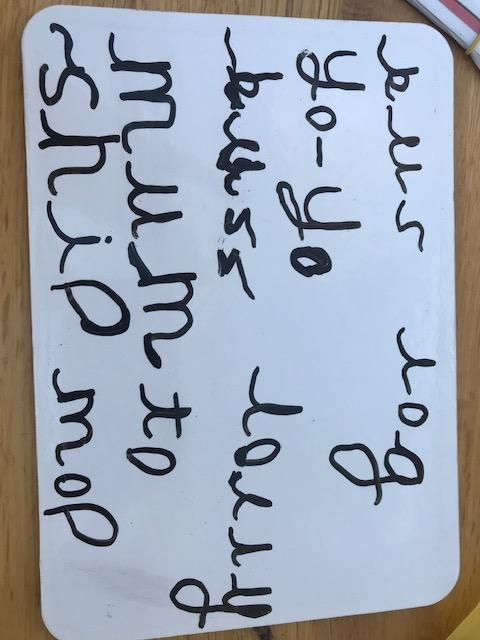 bus log
yo-yo
lorry
mum to
ship mop